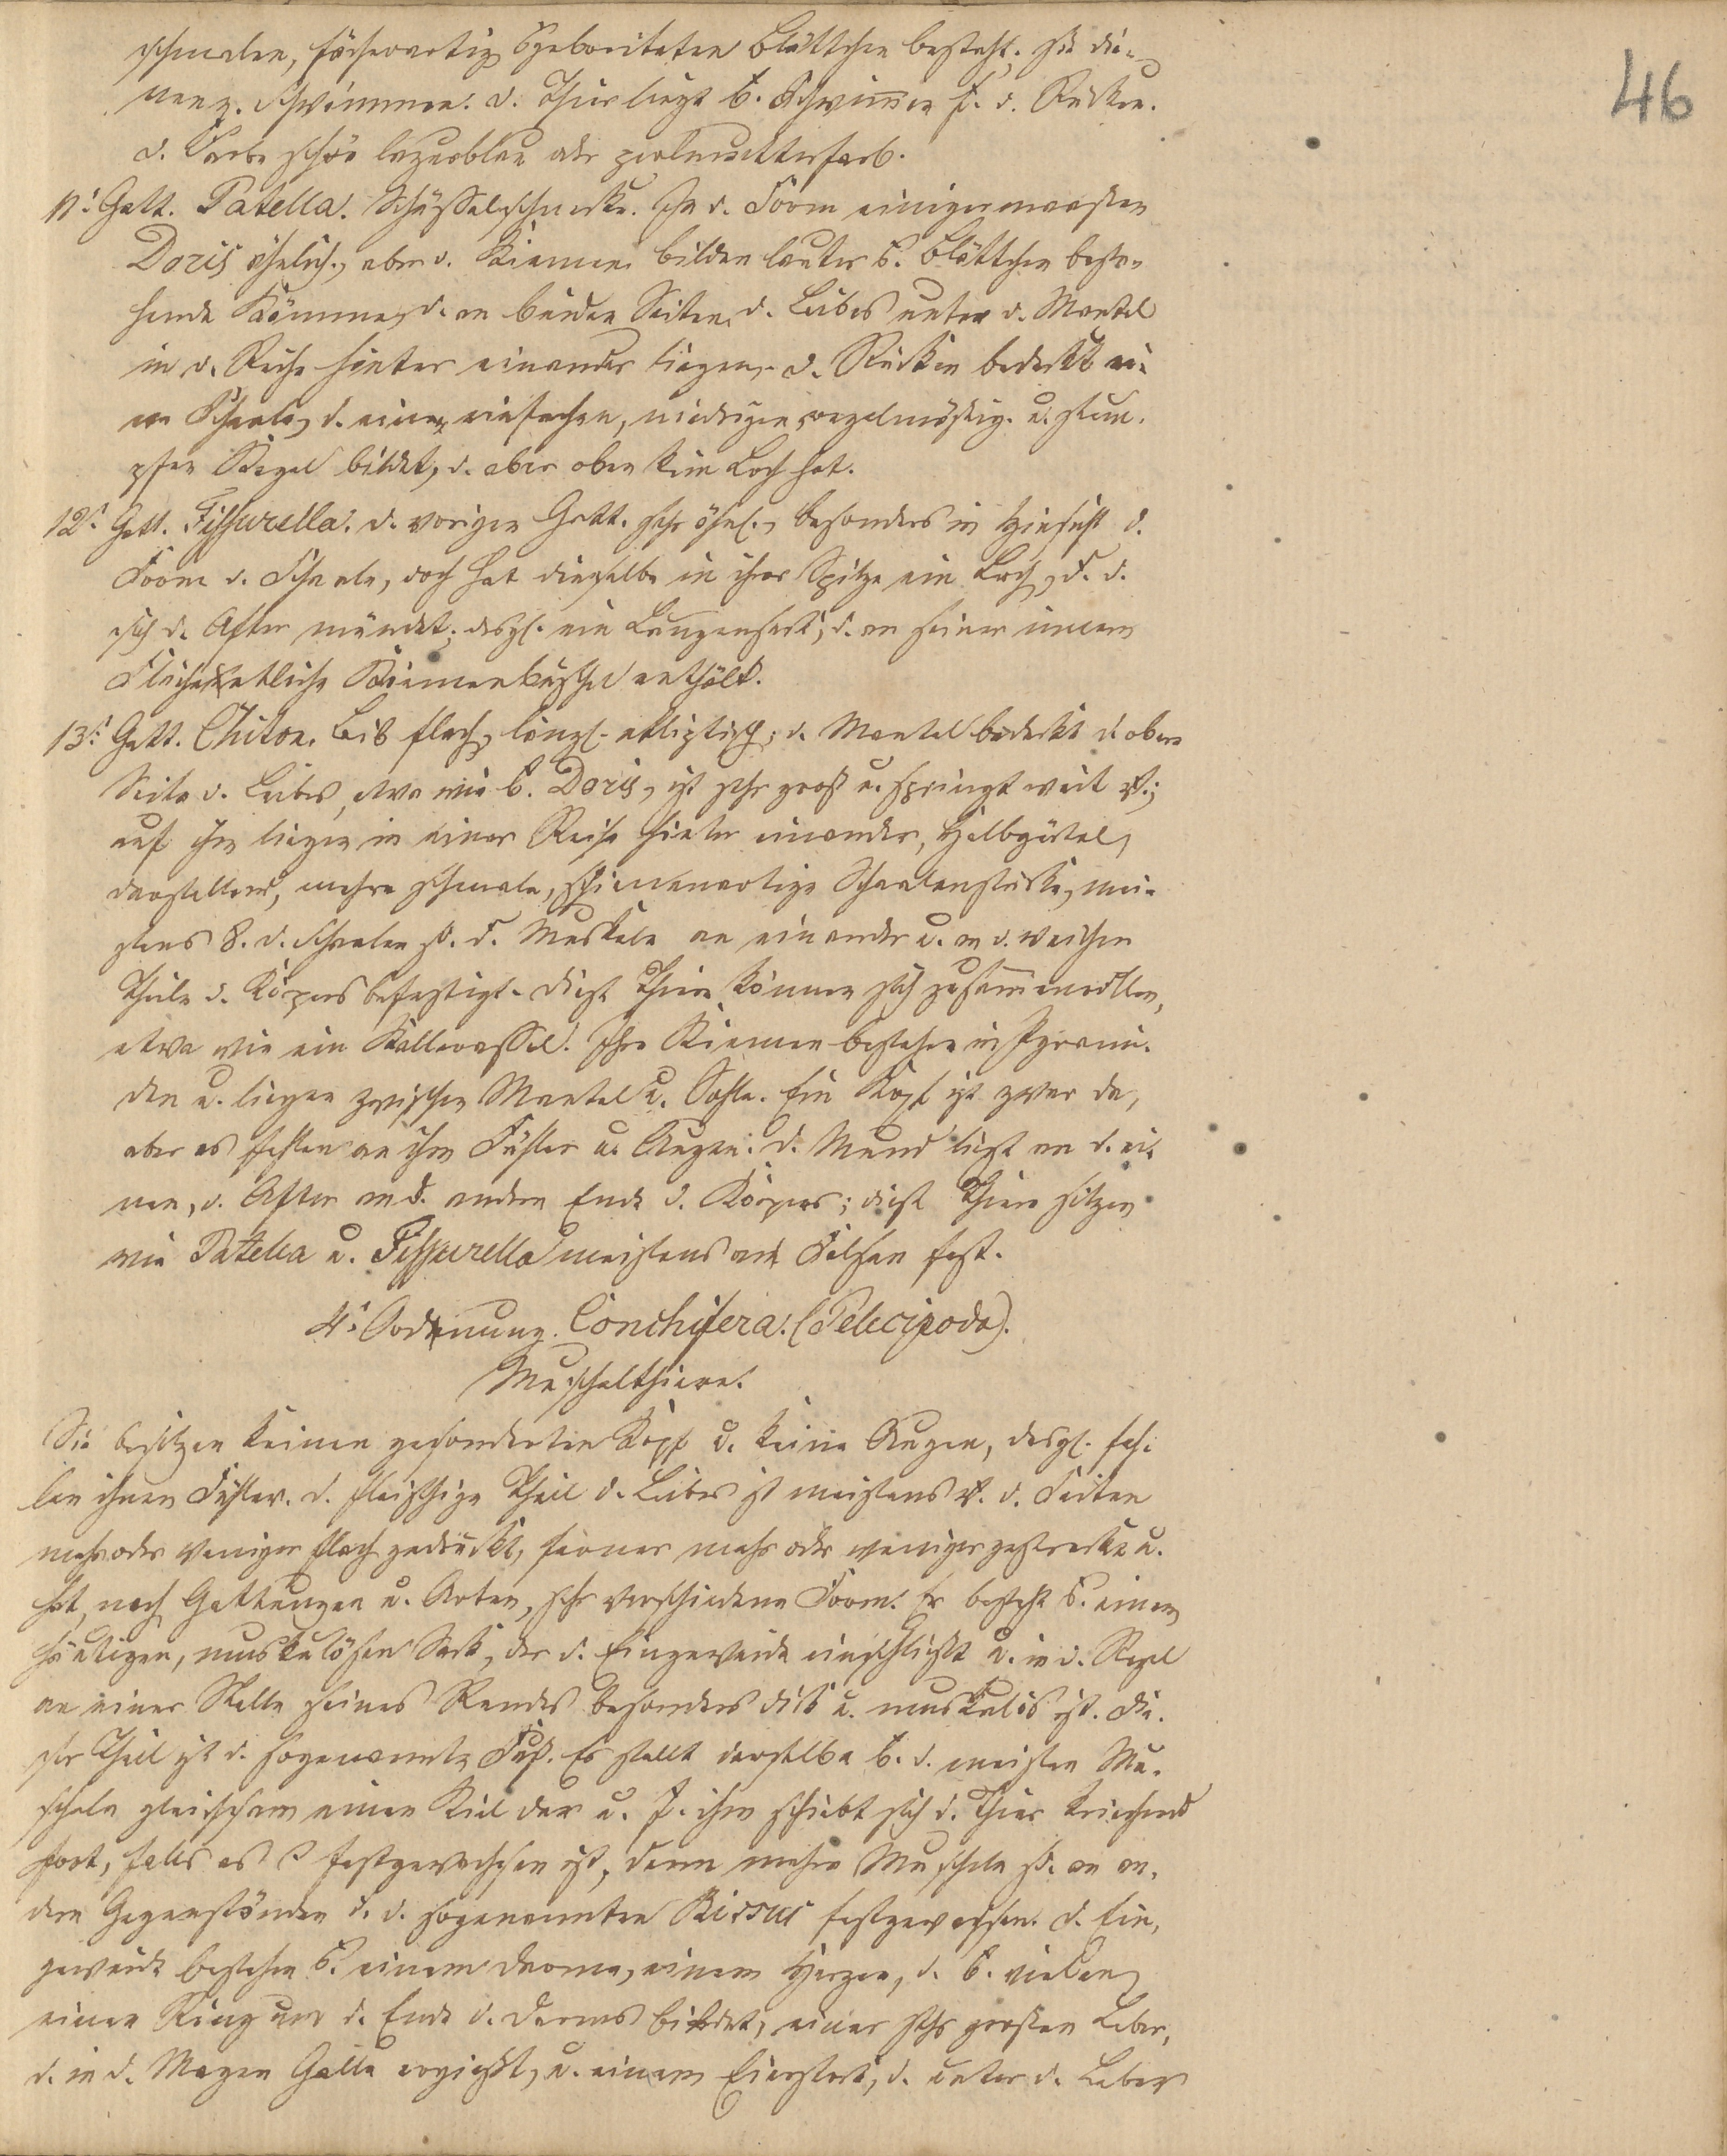 46
schmalen, fächerartig ausgebreiteten Blättchen besteht; sie die-
nen z. Schwimmen. d. Thier liegt b. Schwimmen f. d. Rücken.
d. Farbe schön lazurblau oder perlmutterfarb.
11. Gatt. Patella. Schüsselschnecke. In d. Form einigermaassen
Doris ähnlich, aber d. Kiemen bilden lauter b. Blättchen beste-
hende Kämme, d. an beiden Seiten d. Leibes unter d. Mantel
in d. Reihe hinter einander liegen. d. Rücken bedeckt ei-
ne Schaale, d. einen einfachen, niedrigen, regelmässig. u. stum-
pfen Kegel bildet, d. aber oben kein Loch hat.
12. Gatt. Fissurella. d. vorigen Gatt. sehr ähnl., besonders in Hinsicht d.
Form d. Schaale, doch hat dieselbe in ihrer Spitze ein Loch, d. d.
sich d. After mündet; desgl. ein Lungensack, d. an seiner innern
Fläche etliche Kiemenbüschel enthält.
13. Gatt. Chiton. Leib flach, längl. elliptisch; d. Mantel bedeckt d. obere
Seite d. Leibes, etwa wie b. Doris, ist sehr gross u. springt weit v.;
auf ihm liegen in einer Reihe hinter einander, Halbgürtel
darstellend, mehre schmale, schienenartige Schaalenstücke, mei-
stens 8. d. Schaalen sd. d. Muskeln an einander u. an d. weichen
Theile d. Körpers befestigt. Diese Thiere können sich zusammenrollen,
etwa wie ein Kellerassel. Ihre Kiemen bestehen in Pyrami-
den u. liegen zwischen Mantel u. Sohle. Ein Kopf ist zwar da,
aber es fehlen an ihm Fühler u. Augen. d. Mund liegt an d. ei-
nen, d. After an d. andern Ende d. Körpers; diese Thiere sitzen
wie Patella u. Fissurella meistens an Felsen fest.
4. Ordnung. Conchifera. (Pelecipoda).
Muschelthiere.
Sie besitzen keinen gesonderten Kopf u. keine Augen, desgl. feh-
len ihnen Fühler. d. fleischige Theil d. Leibes ist meistens v. d. Seiten
mehr oder weniger flach gedrückt, ferner mehr oder weniger gestreckt u.
hat, nach Gattungen u. Arten, sehr verschiedene Form. Er besteht b. einem
häutigen, muskulösen Sack, der d. Eingeweide einschliesst u. in d. Regel
an einer Stelle seines Randes besonders dick u. muskulös ist. Die-
ser Theil ist d. sogenannte Fuss. Es stellt derselbe b. d. meisten Mu-
scheln gleichsam einen Kiel dar u. f. ihm schiebt sich d. Thier kriechend
fort, falls es festgewachsen ist, denn mehre Muscheln sd. an an-
dern Gegenständen d. d. sogenannten Bissus festgewachsen. d. Ein-
geweide bestehen b. einem Darme, einem Herzen, d. b. vielen
einen Ring um d. Ende d. Darms bildet, einer sehr grossen Leber,
d. in d. Magen Galle ergiesst, u. einem Eierstock, d. unter d. Leber